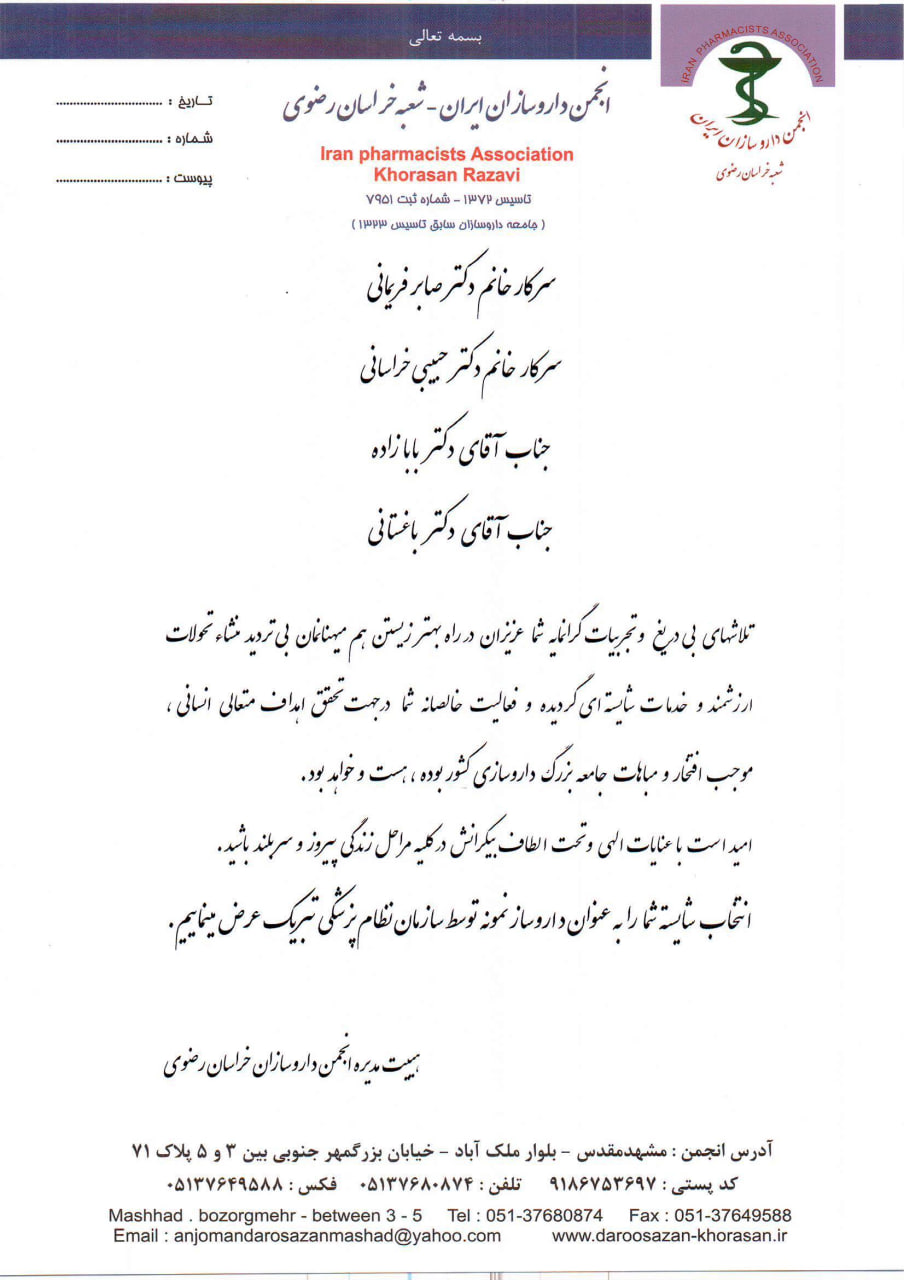 بسمه تعالی
IRAN PHARMACISTS ASSOCIATION
انجمن داروسازان ایران
شعبه خراسان رضوی
انجمن داروسازان ایران - شعبه خراسان رضوی
Iran pharmacists Association
Khorasan Razavi
تاسیس ۱۳۷۲ - شماره ثبت ۷۹۵۱
( جامعه داروسازان سابق تاسیس ۱۳۲۳ )
تاریخ : ..............................
شماره : ..............................
پیوست : ..............................
سرکار خانم دکتر صابر فریمانی
سرکار خانم دکتر حبیبی خراسانی
جناب آقای دکتر بابازاده
جناب آقای دکتر باغستانی
تلاشهای بی دریغ وتجربیات گرانمایه شما عزیزان در راه بهتر زیستن هم میهنانمان بی تردید منشاء تحولات
ارزشمند و خدمات شایسته ای گردیده و فعالیت خالصانه شما درجهت تحقق اهداف متعالی انسانی ،
موجب افتخار و مباهات جامعه بزرگ داروسازی کشور بوده ، هست و خواهد بود.
امید است با عنایات الهی وتحت الطاف بیکرانش در کلیه مراحل زندگی پیروز و سربلند باشید.
انتخاب شایسته شما را به عنوان داروساز نمونه توسط سازمان نظام پزشکی تبریک عرض مینماییم.
هییت مدیره انجمن داروسازان خراسان رضوی
آدرس انجمن : مشهدمقدس - بلوار ملک آباد - خیابان بزرگمهر جنوبی بین ۳ و ۵ پلاک ۷۱
کد پستی : ۹۱۸۶۷۵۳۶۹۷ تلفن : ۰۵۱۳۷۶۸۰۸۷۴ فکس : ۰۵۱۳۷۶۴۹۵۸۸
Mashhad . bozorgmehr - between 3 - 5 Tel : 051-37680874 Fax : 051-37649588
Email : anjomandarosazanmashad@yahoo.com www.daroosazan-khorasan.ir